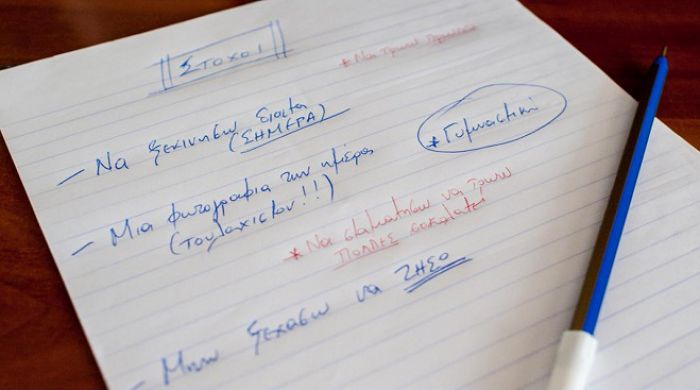 ΣΤΟΧΟΙ
* Να τρώω
- Να ξεκινησω δίαιτα
(ΣΗΜΕΡΑ)
* Γυμναστική
- Μια φωτογραφια την ημέρα
(τουλαχιστον!!)
* Να σταματήσω να τρωω
ΠΟΛΛΕΣ σοκολατες
- Μην ξεχασω να ΖΗΣΩ